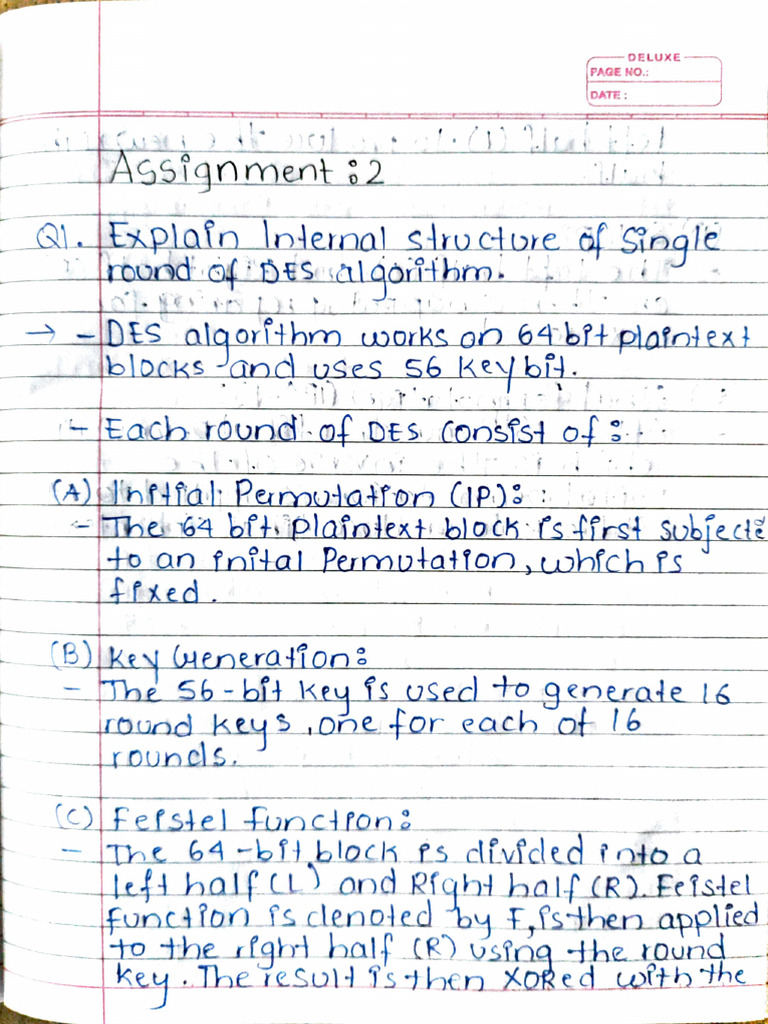 DELUXE
PAGE NO.:
DATE:
Assignment : 2
Q1. Explain Internal structure of Single
round of DES algorithm.
→ - DES algorithm works on 64 bit plaintext
blocks and uses 56 key bit.
- Each round of DES consist of :-
(A) Initial Permutation (IP):
- The 64 bit plaintext block is first subjecte
to an inital Permutation, which is
fixed.
(B) Key Generation:
- The 56-bit key is used to generate 16
round keys, one for each of 16
rounds.
(C) Feistel function:
- The 64-bit block is divided into a
left half (L) and Right half (R). Feistel
function is denoted by F, is then applied
to the right half (R) using the round
key. The result is then XORed with the